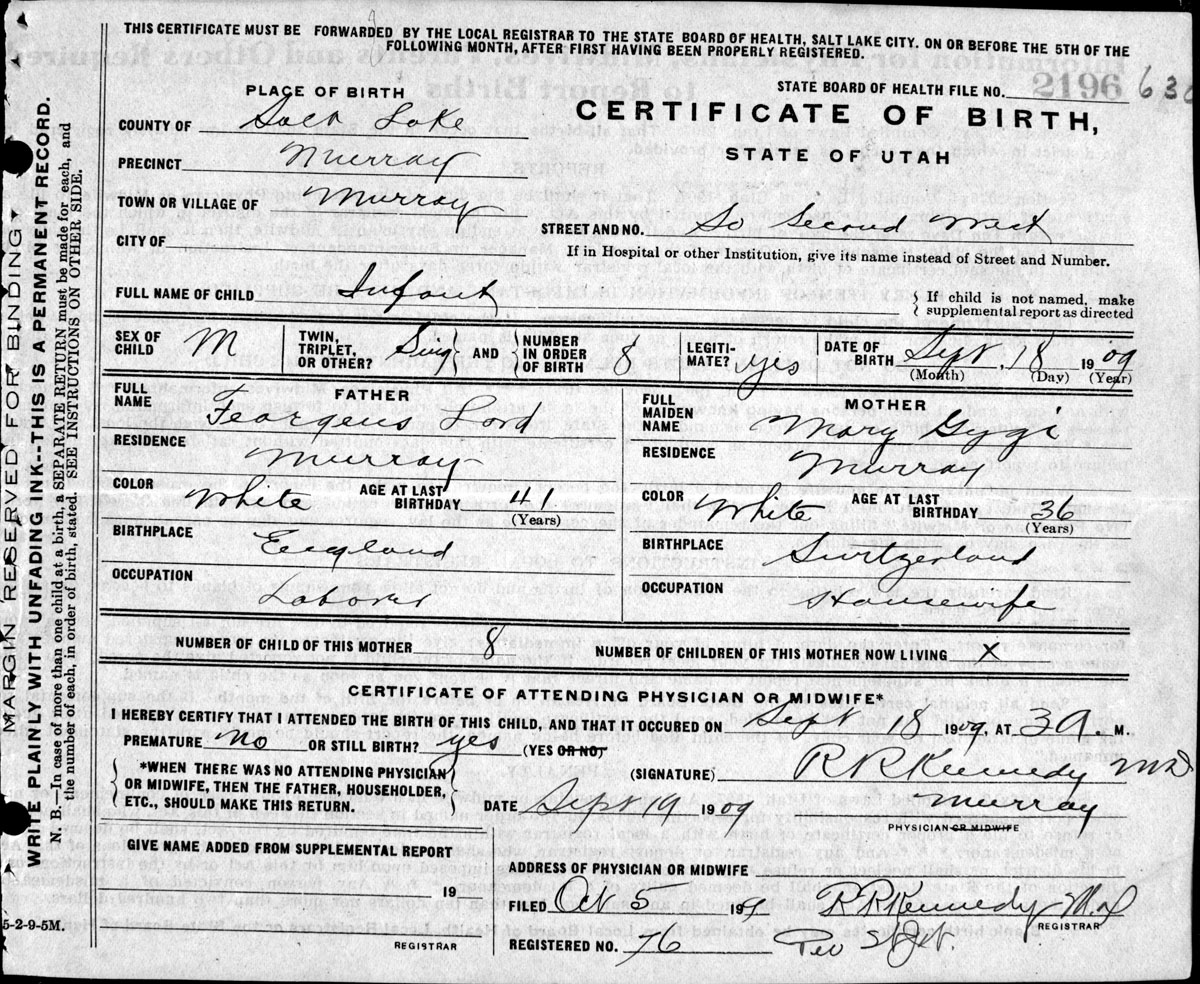 THIS CERTIFICATE MUST BE FORWARDED BY THE LOCAL REGISTRAR TO THE STATE BOARD OF HEALTH, SALT LAKE CITY. ON OR BEFORE THE 5TH OF THE
FOLLOWING MONTH, AFTER FIRST HAVING BEEN PROPERLY REGISTERED.
STATE BOARD OF HEALTH FILE NO. 2196 630
PLACE OF BIRTH
CERTIFICATE OF BIRTH,
STATE OF UTAH
COUNTY OF Salt Lake
PRECINCT Murray
TOWN OR VILLAGE OF Murray
STREET AND NO. So Second West
CITY OF
If in Hospital or other Institution, give its name instead of Street and Number.
FULL NAME OF CHILD Infant
If child is not named, make
supplemental report as directed
SEX OF CHILD M
TWIN, TRIPLET, OR OTHER? Sing AND NUMBER IN ORDER OF BIRTH 8
LEGITI-MATE? yes
DATE OF BIRTH Sept, 18 1909
(Month) (Day) (Year)
FATHER
FULL NAME Feargus Lord
RESIDENCE Murray
COLOR White AGE AT LAST BIRTHDAY 41
(Years)
BIRTHPLACE England
OCCUPATION Laborer
MOTHER
FULL MAIDEN NAME Mary Gygi
RESIDENCE Murray
COLOR White AGE AT LAST BIRTHDAY 36
(Years)
BIRTHPLACE Switzerland
OCCUPATION Housewife
NUMBER OF CHILD OF THIS MOTHER 8 NUMBER OF CHILDREN OF THIS MOTHER NOW LIVING X
CERTIFICATE OF ATTENDING PHYSICIAN OR MIDWIFE*
I HEREBY CERTIFY THAT I ATTENDED THE BIRTH OF THIS CHILD, AND THAT IT OCCURED ON Sept 18 1909, AT 3 A. M.
PREMATURE no OR STILL BIRTH? yes (YES OR NO)
*WHEN THERE WAS NO ATTENDING PHYSICIAN
OR MIDWIFE, THEN THE FATHER, HOUSEHOLDER,
ETC., SHOULD MAKE THIS RETURN.
(SIGNATURE) R R Kennedy MD
DATE Sept 19 1909 Murray
PHYSICIAN OR MIDWIFE
GIVE NAME ADDED FROM SUPPLEMENTAL REPORT
19
REGISTRAR
ADDRESS OF PHYSICIAN OR MIDWIFE
FILED Oct 5 199 R R Kennedy M.D
REGISTRAR
REGISTERED NO. 76
5-2-9-5M.
MARGIN RESERVED FOR BINDING.
WRITE PLAINLY WITH UNFADING INK--THIS IS A PERMANENT RECORD.
N. B.—In case of more than one child at a birth, a SEPARATE RETURN must be made for each, and
the number of each, in order of birth, stated. SEE INSTRUCTIONS ON OTHER SIDE.